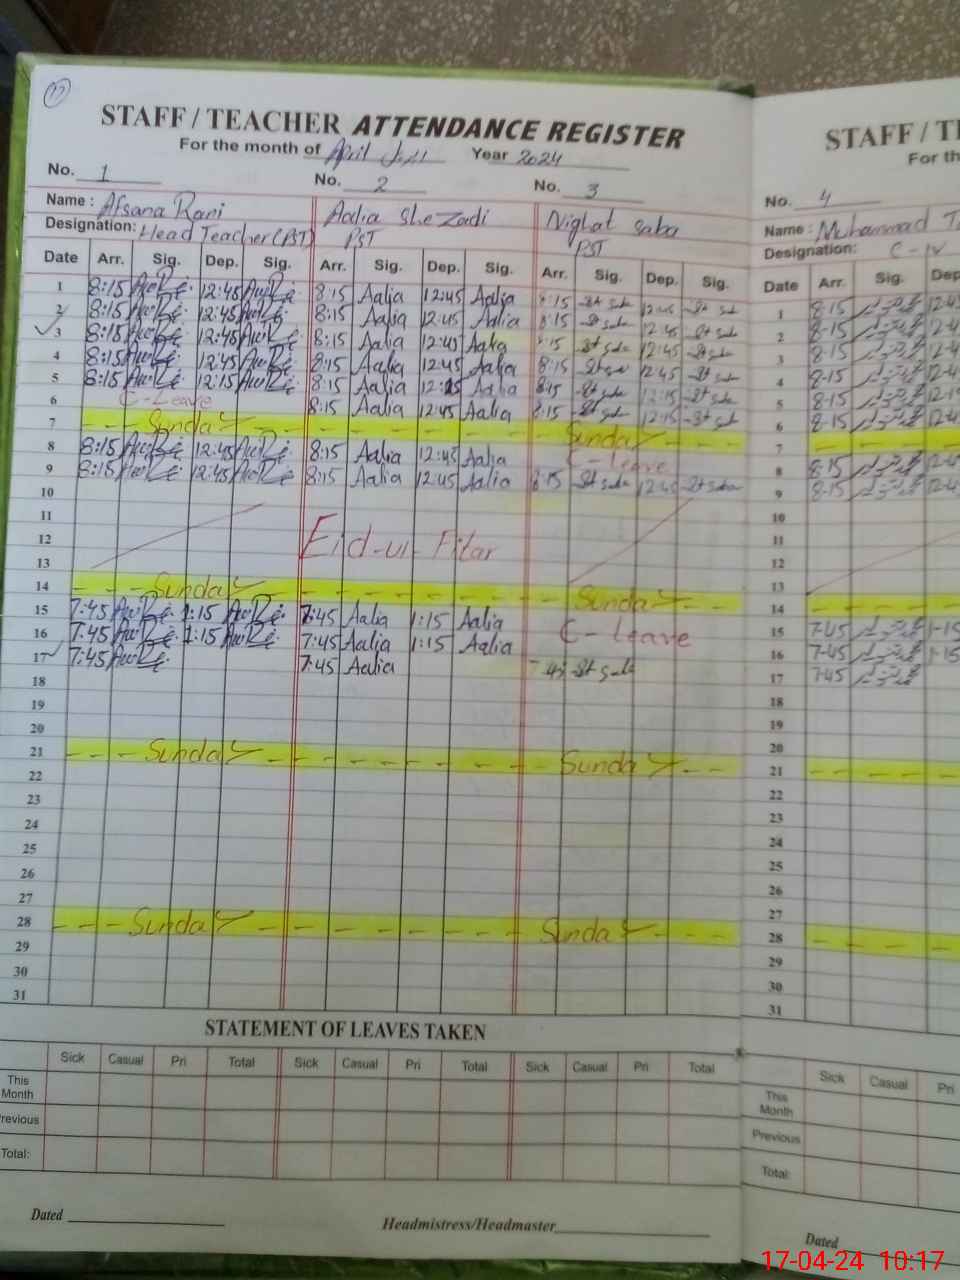 17
STAFF / TEACHER ATTENDANCE REGISTER
For the month of April Year 2024
No. 1 No. 2 No. 3
Name : Afsana Rani Aadia Shezadi Nighat Saba
Designation: Head Teacher (PST) PST PST
Date Arr. Sig. Dep. Sig. Arr. Sig. Dep. Sig. Arr. Sig. Dep. Sig.
1 8:15 12:45 8:15 Aalia 12:45 Aalia 8:15 12:45
2 8:15 12:45 8:15 Aalia 12:45 Aalia 8:15 12:45
3 8:15 12:45 8:15 Aalia 12:45 Aalia 8:15 12:45
4 8:15 12:45 8:15 Aalia 12:45 Aalia 8:15 12:45
5 8:15 12:15 8:15 Aalia Aalia 8:15 12:15
6 C-Leave 8:15 Aalia 12:45 Aalia 8:15 12:15
7 Sunday Sunday
8 8:15 12:45 8:15 Aalia 12:45 Aalia C-leave
9 8:15 12:45 8:15 Aalia 12:45 Aalia 8:15 12:45
10
11
12 Eid-ul-Fitar
13
14 Sunday Sunday
15 7:45 1:15 7:45 Aalia 1:15 Aalia C-Leave
16 7:45 1:15 7:45 Aalia 1:15 Aalia
17 7:45 7:45 Aalia 7:45
18
19
20
21 Sunday Sunday
22
23
24
25
26
27
28 Sunday Sunday
29
30
31
STATEMENT OF LEAVES TAKEN
Sick Casual Pri Total Sick Casual Pri Total Sick Casual Pri Total
This Month
revious
Total:
Dated Headmistress/Headmaster
STAFF / TE
For th
No. 4
Name : Muhammad
Designation: C-IV
Date Arr. Sig. Dep
1 8:15 12:4
2 8:15 12:4
3 8:15 12:4
4 8:15 12:4
5 8:15 12:4
6 8:15 12:4
7
8 8:15 12:4
9 8:15 12:4
10
11
12
13
14
15 7:45 1:15
16 7:45 1:15
17 7:45
18
19
20
21
22
23
24
25
26
27
28
29
30
31
Sick Casual Pri
This Month
Previous
Total:
Dated
17-04-24 10:17